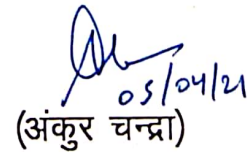 05/04/21
(अंकुर चन्द्रा)